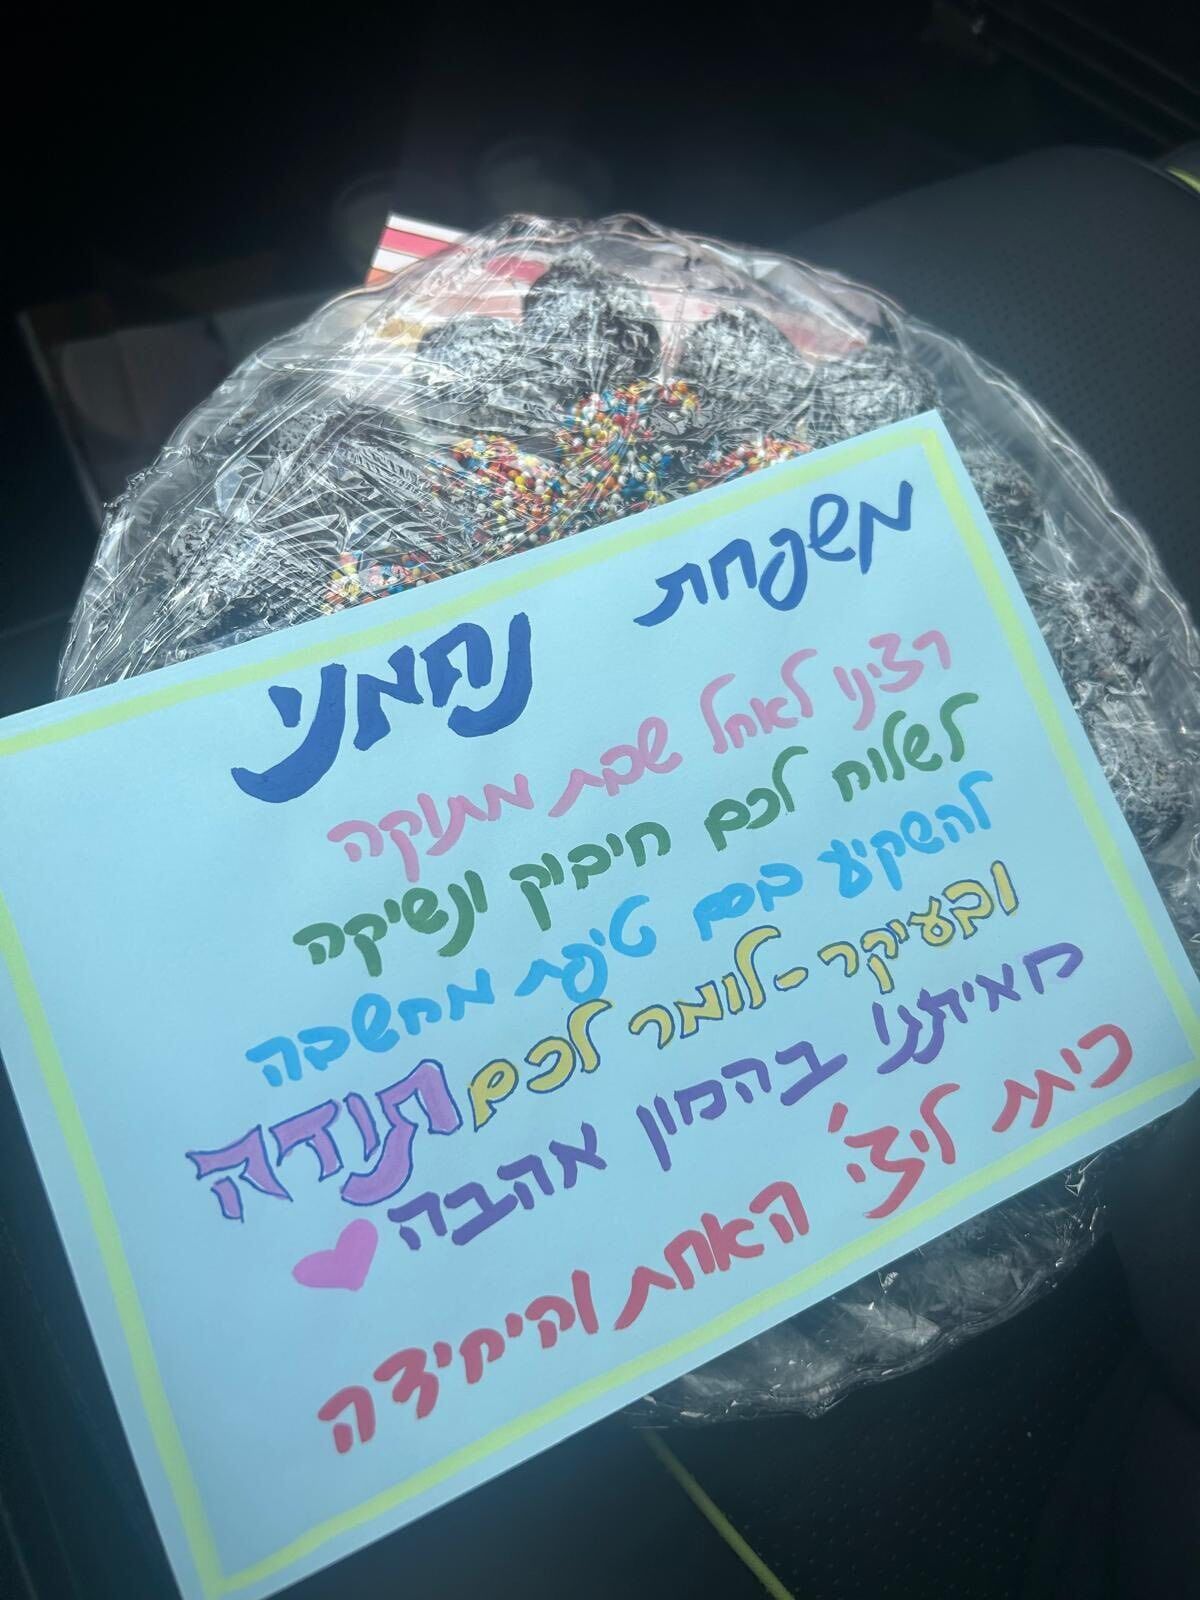 משפחת נחמני
רצינו לאחל שבת מתוקה
לשלוח לכם חיבוק ונשיקה
להשקיע בכם טיפת מחשבה
ובעיקר - לומר לכם תודה
מאיתנו בהמון אהבה
כיתת ליצ'י האחת והיחידה